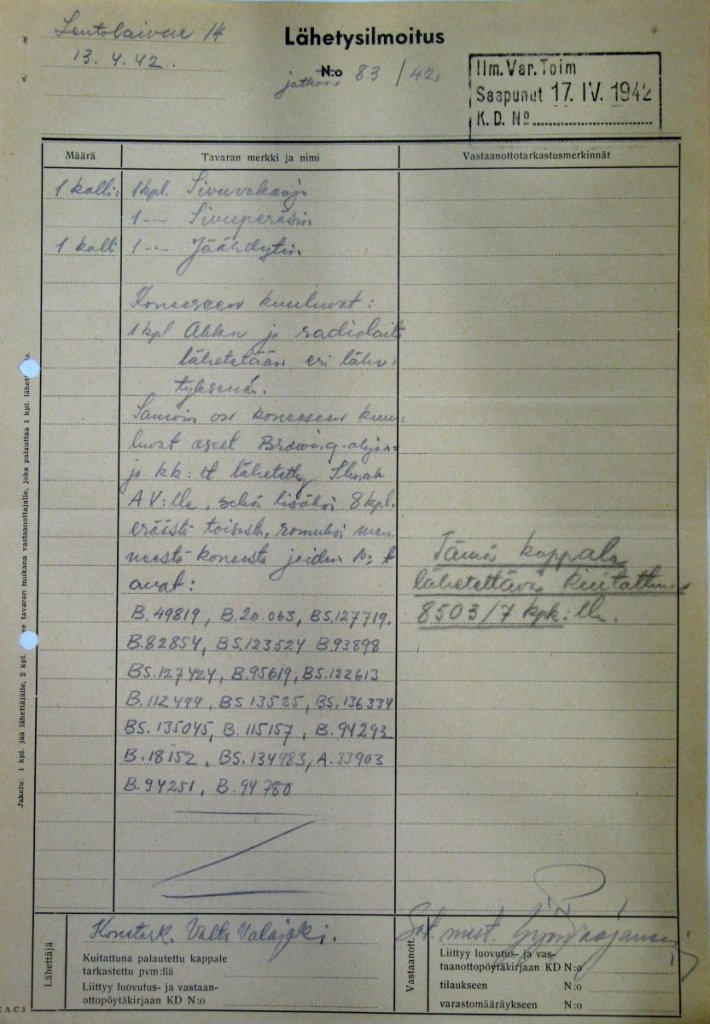 Lentolaivue 14
13.4.42.
Lähetysilmoitus
N:o 83/42
jatkoa
Ilm. Var. Toim
Saapunut 17. IV. 1942
K. D. Nº
Määrä
Tavaran merkki ja nimi
Vastaanottotarkastusmerkinnät
1 kolli: 1 kpl. Sivuvakaaja
1 -"- Sivuperäsin
1 kolli 1 -"- Jäähdytin
Koneeseen kuuluvat:
1 kpl Akku ja radiolaite
lähetetään eri lähe-
tyksenä.
Samoin on koneeseen kuu-
luvat aseet Browing-
ja kk:t lähetetty
AV:lle, sekä lisäksi 8 kpl.
eräästä toisesta, romuksi men-
neestä koneesta joiden No:t
ovat:
B.49819, B.20.063, BS.127719.
B.82854, BS.123524 B.93898
BS.127424, B.95619, BS.122613
B.112499, BS.13525, BS.136334
BS.135045, B.115157, B.94293
B.18152, BS.134983, A.33903
B.94251, B.94780
Tämä kappale
lähetettävä kuitattuna
8503/7 kpk:lle.
Jakelu: 1 kpl. jää lähettäjälle, 2 kpl. tavaran mukana vastaanottajalle, joka palauttaa 1 kpl. lähett
Lähettäjä
Valajoki.
Kuitattuna palautettu kappale
tarkastettu pvm:llä
Liittyy luovutus- ja vastaan-
ottopöytäkirjaan KD N:o
Vastaanott.
Sot. mest.
Liittyy luovutus- ja vas-
taanottopöytäkirjaan KD N:o
tilaukseen N:o
varastomääräykseen N:o